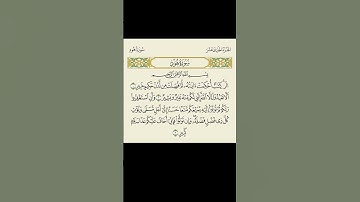 الجزء الحادي عشر
سورة هود
سُورَةُ هُودٍ
بِسْمِ اللَّهِ الرَّحْمَٰنِ الرَّحِيمِ
الٓر كِتَٰبٌ أُحْكِمَتْ ءَايَٰتُهُۥ ثُمَّ فُصِّلَتْ مِن لَّدُنْ حَكِيمٍ خَبِيرٍ ١
أَلَّا تَعْبُدُوٓا۟ إِلَّا ٱللَّهَ إِنَّنِى لَكُم مِّنْهُ نَذِيرٌ وَبَشِيرٌ ٢ وَأَنِ ٱسْتَغْفِرُوا۟
رَبَّكُمْ ثُمَّ تُوبُوٓا۟ إِلَيْهِ يُمَتِّعْكُم مَّتَٰعًا حَسَنًا إِلَىٰٓ أَجَلٍ مُّسَمًّى وَيُؤْتِ
كُلَّ ذِى فَضْلٍ فَضْلَهُۥ وَإِن تَوَلَّوْا۟ فَإِنِّىٓ أَخَافُ عَلَيْكُمْ عَذَابَ يَوْمٍ
كَبِيرٍ ٣